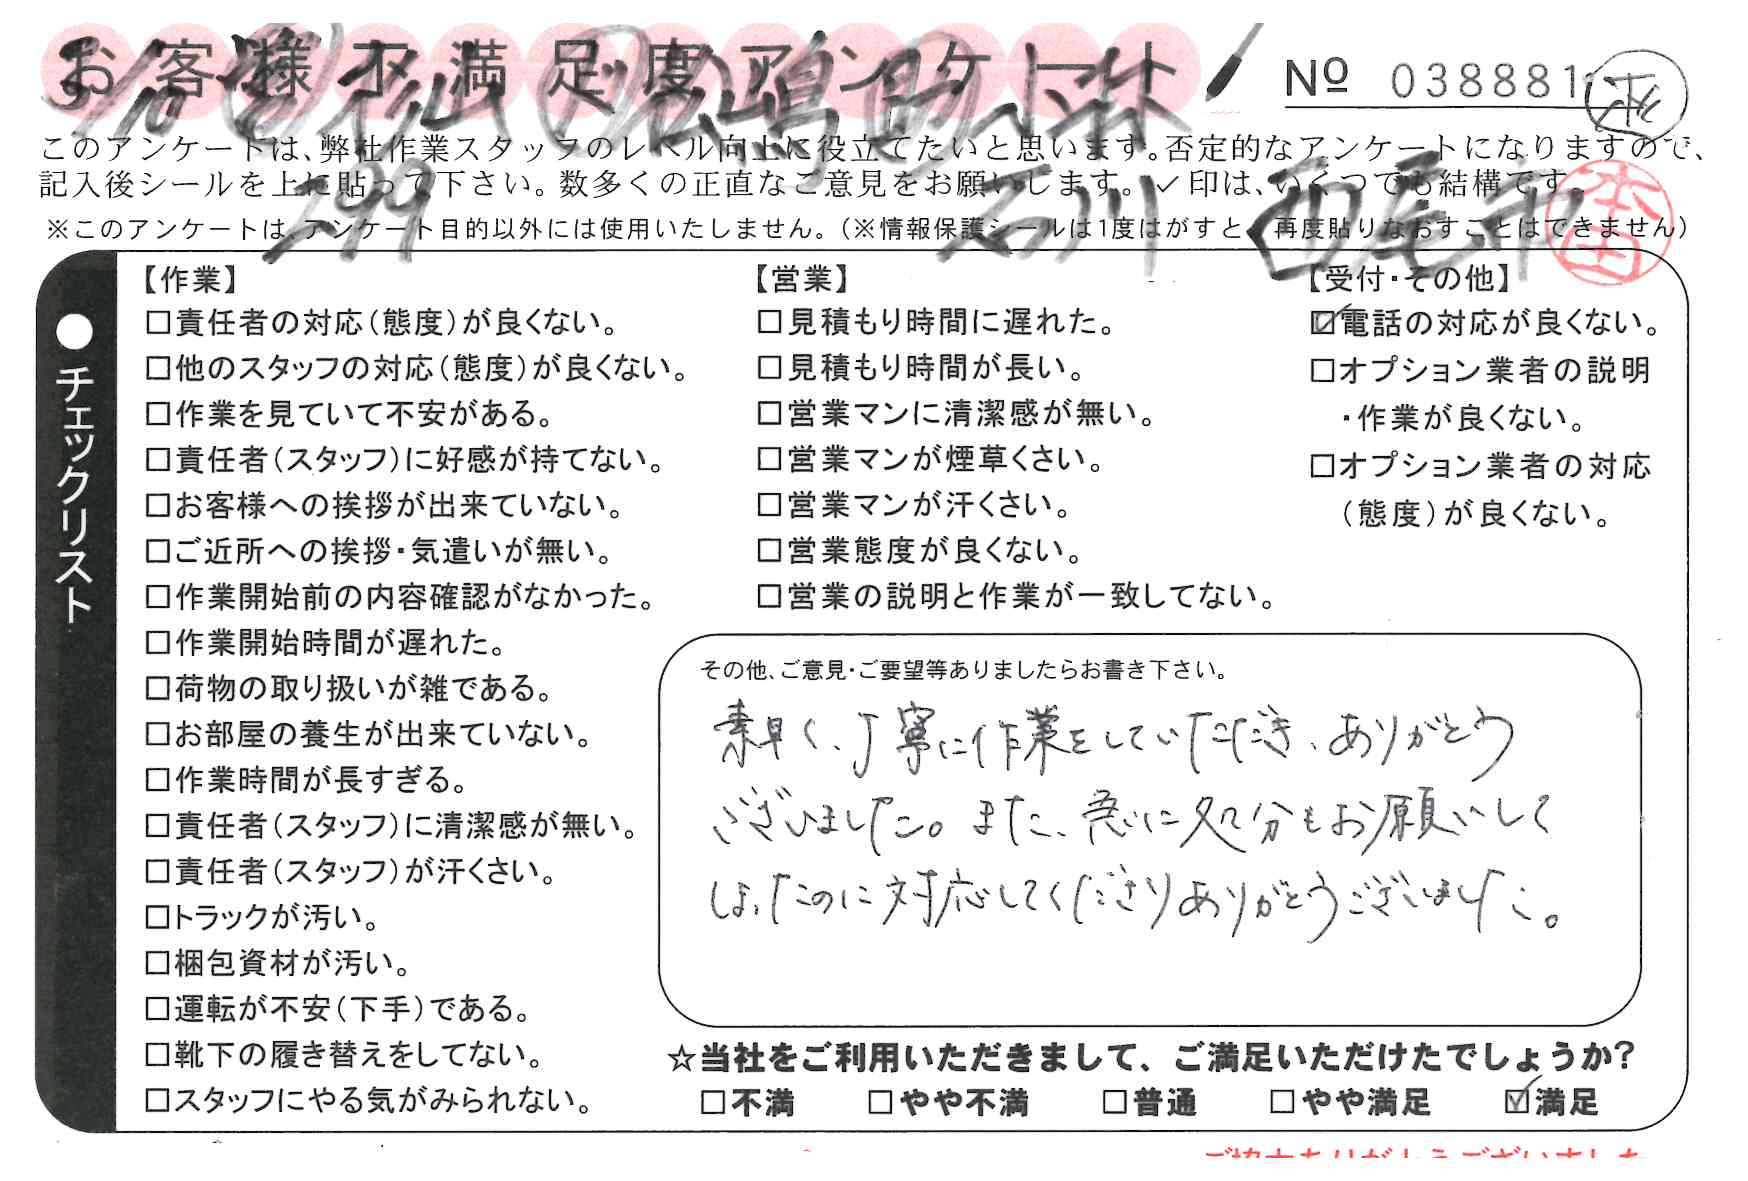 お客様不満足度アンケート
№ 038881
このアンケートは、弊社作業スタッフのレベル向上に役立てたいと思います。否定的なアンケートになりますので、
記入後シールを上に貼って下さい。数多くの正直なご意見をお願いします。✓印は、いくつでも結構です。
※このアンケートは、アンケート目的以外には使用いたしません。(※情報保護シールは1度はがすと、再度貼りなおすことはできません)
299 石川 西尾市
本田
●チェックリスト
【作業】
□責任者の対応(態度)が良くない。
□他のスタッフの対応(態度)が良くない。
□作業を見ていて不安がある。
□責任者(スタッフ)に好感が持てない。
□お客様への挨拶が出来ていない。
□ご近所への挨拶・気遣いが無い。
□作業開始前の内容確認がなかった。
□作業開始時間が遅れた。
□荷物の取り扱いが雑である。
□お部屋の養生が出来ていない。
□作業時間が長すぎる。
□責任者(スタッフ)に清潔感が無い。
□責任者(スタッフ)が汗くさい。
□トラックが汚い。
□梱包資材が汚い。
□運転が不安(下手)である。
□靴下の履き替えをしてない。
□スタッフにやる気がみられない。
【営業】
□見積もり時間に遅れた。
□見積もり時間が長い。
□営業マンに清潔感が無い。
□営業マンが煙草くさい。
□営業マンが汗くさい。
□営業態度が良くない。
□営業の説明と作業が一致してない。
【受付・その他】
☑電話の対応が良くない。
□オプション業者の説明
・作業が良くない。
□オプション業者の対応
(態度)が良くない。
その他、ご意見・ご要望等ありましたらお書き下さい。
素早く、丁寧に作業をしていただき、ありがとう
ございました。また、急に処分もお願いして
しまったのに対応してくださりありがとうございました。
☆当社をご利用いただきまして、ご満足いただけたでしょうか?
□不満 □やや不満 □普通 □やや満足 ☑満足
ご協力ありがとうございました